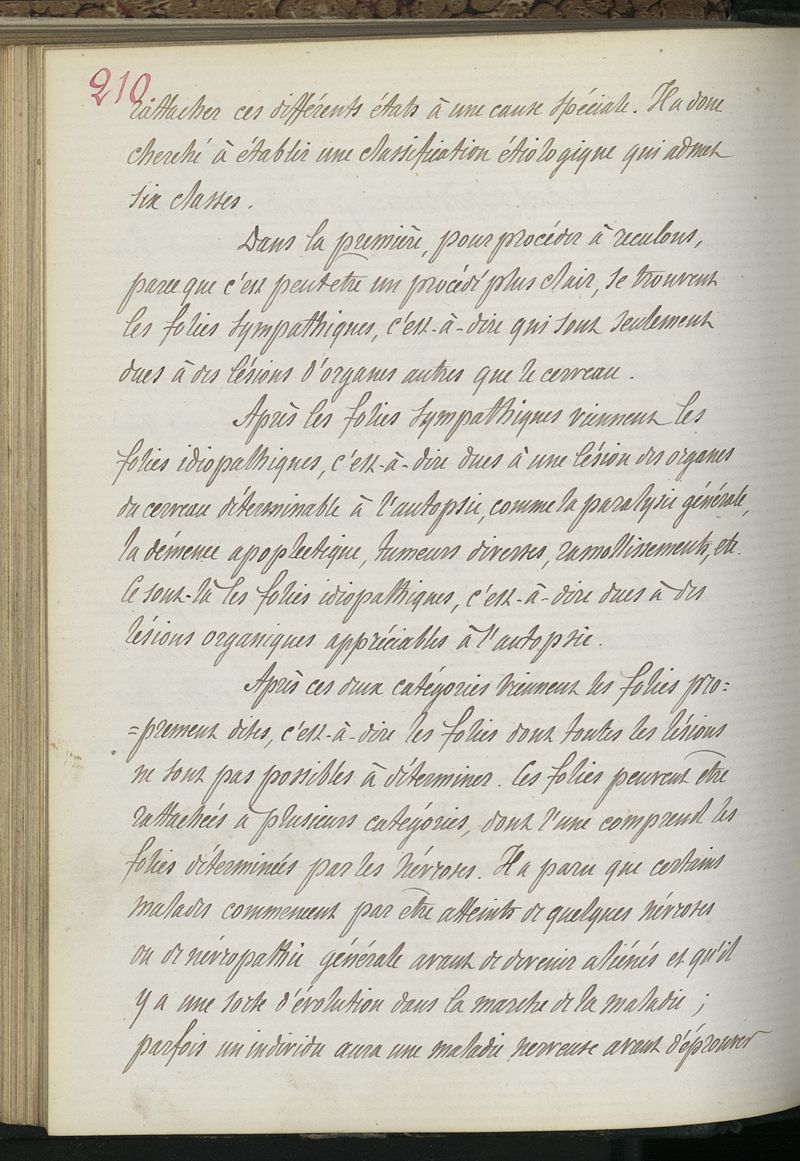 210
rattacher ces différents états à une cause spéciale. Il a donc
cherché à établir une classification étiologique qui admet
six classes.
Dans la première, pour procéder à reculons,
parce que c'est peut être un procédé plus clair, se trouvent
les folies sympathiques, c'est-à-dire qui sont seulement
dues à des lésions d'organes autres que le cerveau.
Après les folies sympathiques viennent les
folies idiopathiques, c'est-à-dire dues à une lésion des organes
du cerveau déterminable à l'autopsie, comme la paralysie générale,
la démence apoplectique, tumeurs diverses, ramollissements, etc.
Ce sont-là les folies idiopathiques, c'est-à-dire dues à des
lésions organiques appréciables à l'autopsie.
Après ces deux catégories viennent les folies pro=
=prement dites, c'est-à-dire les folies dont toutes les lésions
ne sont pas possibles à déterminer. Ces folies peuvent être
rattachées à plusieurs catégories, dont l'une comprend les
folies déterminées par les névroses. Il a paru que certains
malades commencent par être atteints de quelques névroses
ou de névropathie générale avant de devenir aliénés et qu'il
y a une sorte d'évolution dans la marche de la maladie ;
parfois un individu aura une maladie nerveuse avant d'éprouver